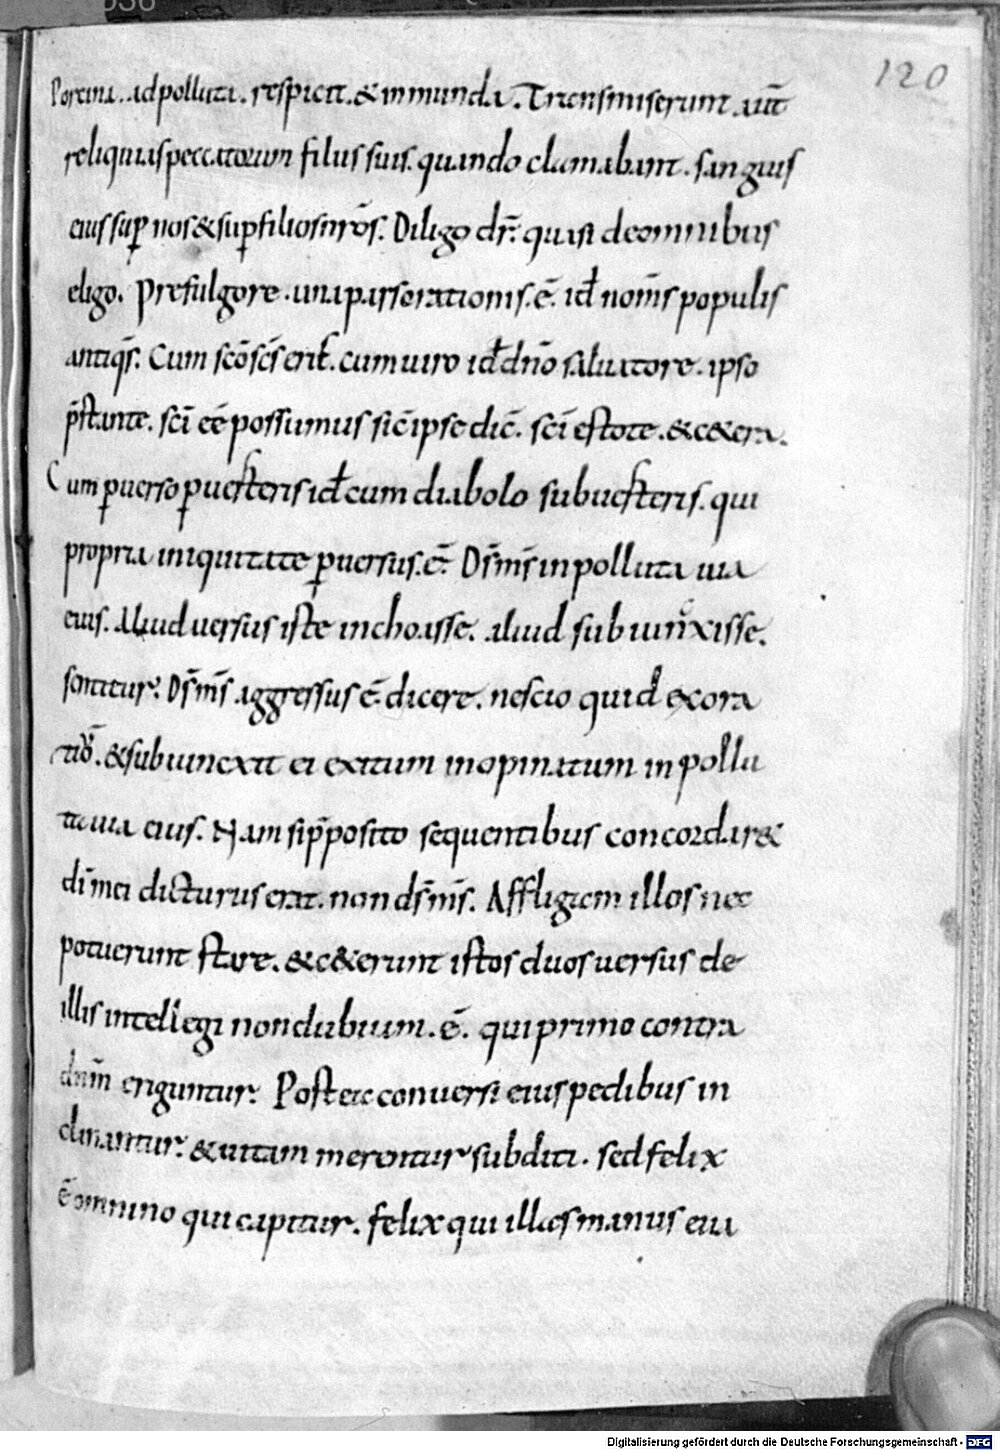 120
Porcina. ad polluta. respicit. & inmunda. Transmiserunt aut̄
reliquias peccatorum filiis suis. quando clamabant. sanguis
eius sup̄ nos & sup̄ filios nr̄os. Diligo dr̄. quasi de omnibus
eligo. Prefulgore. una pars orationis. ē. id̄ nom̄s populis
antiq̄s. Cum sc̄o sc̄s erit̄. cum uiro id̄ dn̄o saluatore. ipso
p̄stante. sc̄i eē possumus sic̄ ipse dic̄. sc̄i estote. & c&era.
Cum puerso puerteris id̄ cum diabolo subuerteris. qui
propria iniquitate puersus. ē. Ds̄ ms̄ in polluta uia
eius. Aliud uersus iste inchoasse. aliud subiunxisse.
sentitur. Ds̄ ms̄ aggressus ē. dicere. nescio quid exora
tio. & subiuncxit ei exitum inopinatum in pollu
ta uia eius. Nam si p̄posito sequentibus concordar&
ds̄ mei dicturus erat. non ds̄ ms̄. Affligam illos nec
potuerunt stare. & c&erunt istos duos uersus de
illis intellegi non dubium. ē. qui primo contra
dn̄m eriguntur. Postea conuersi eius pedibus in
clinantur. & uitam merentur subditi. sed felix
ē omnino qui capitur. felix qui illas manus eua
Digitalisierung gefördert durch die Deutsche Forschungsgemeinschaft - DFG